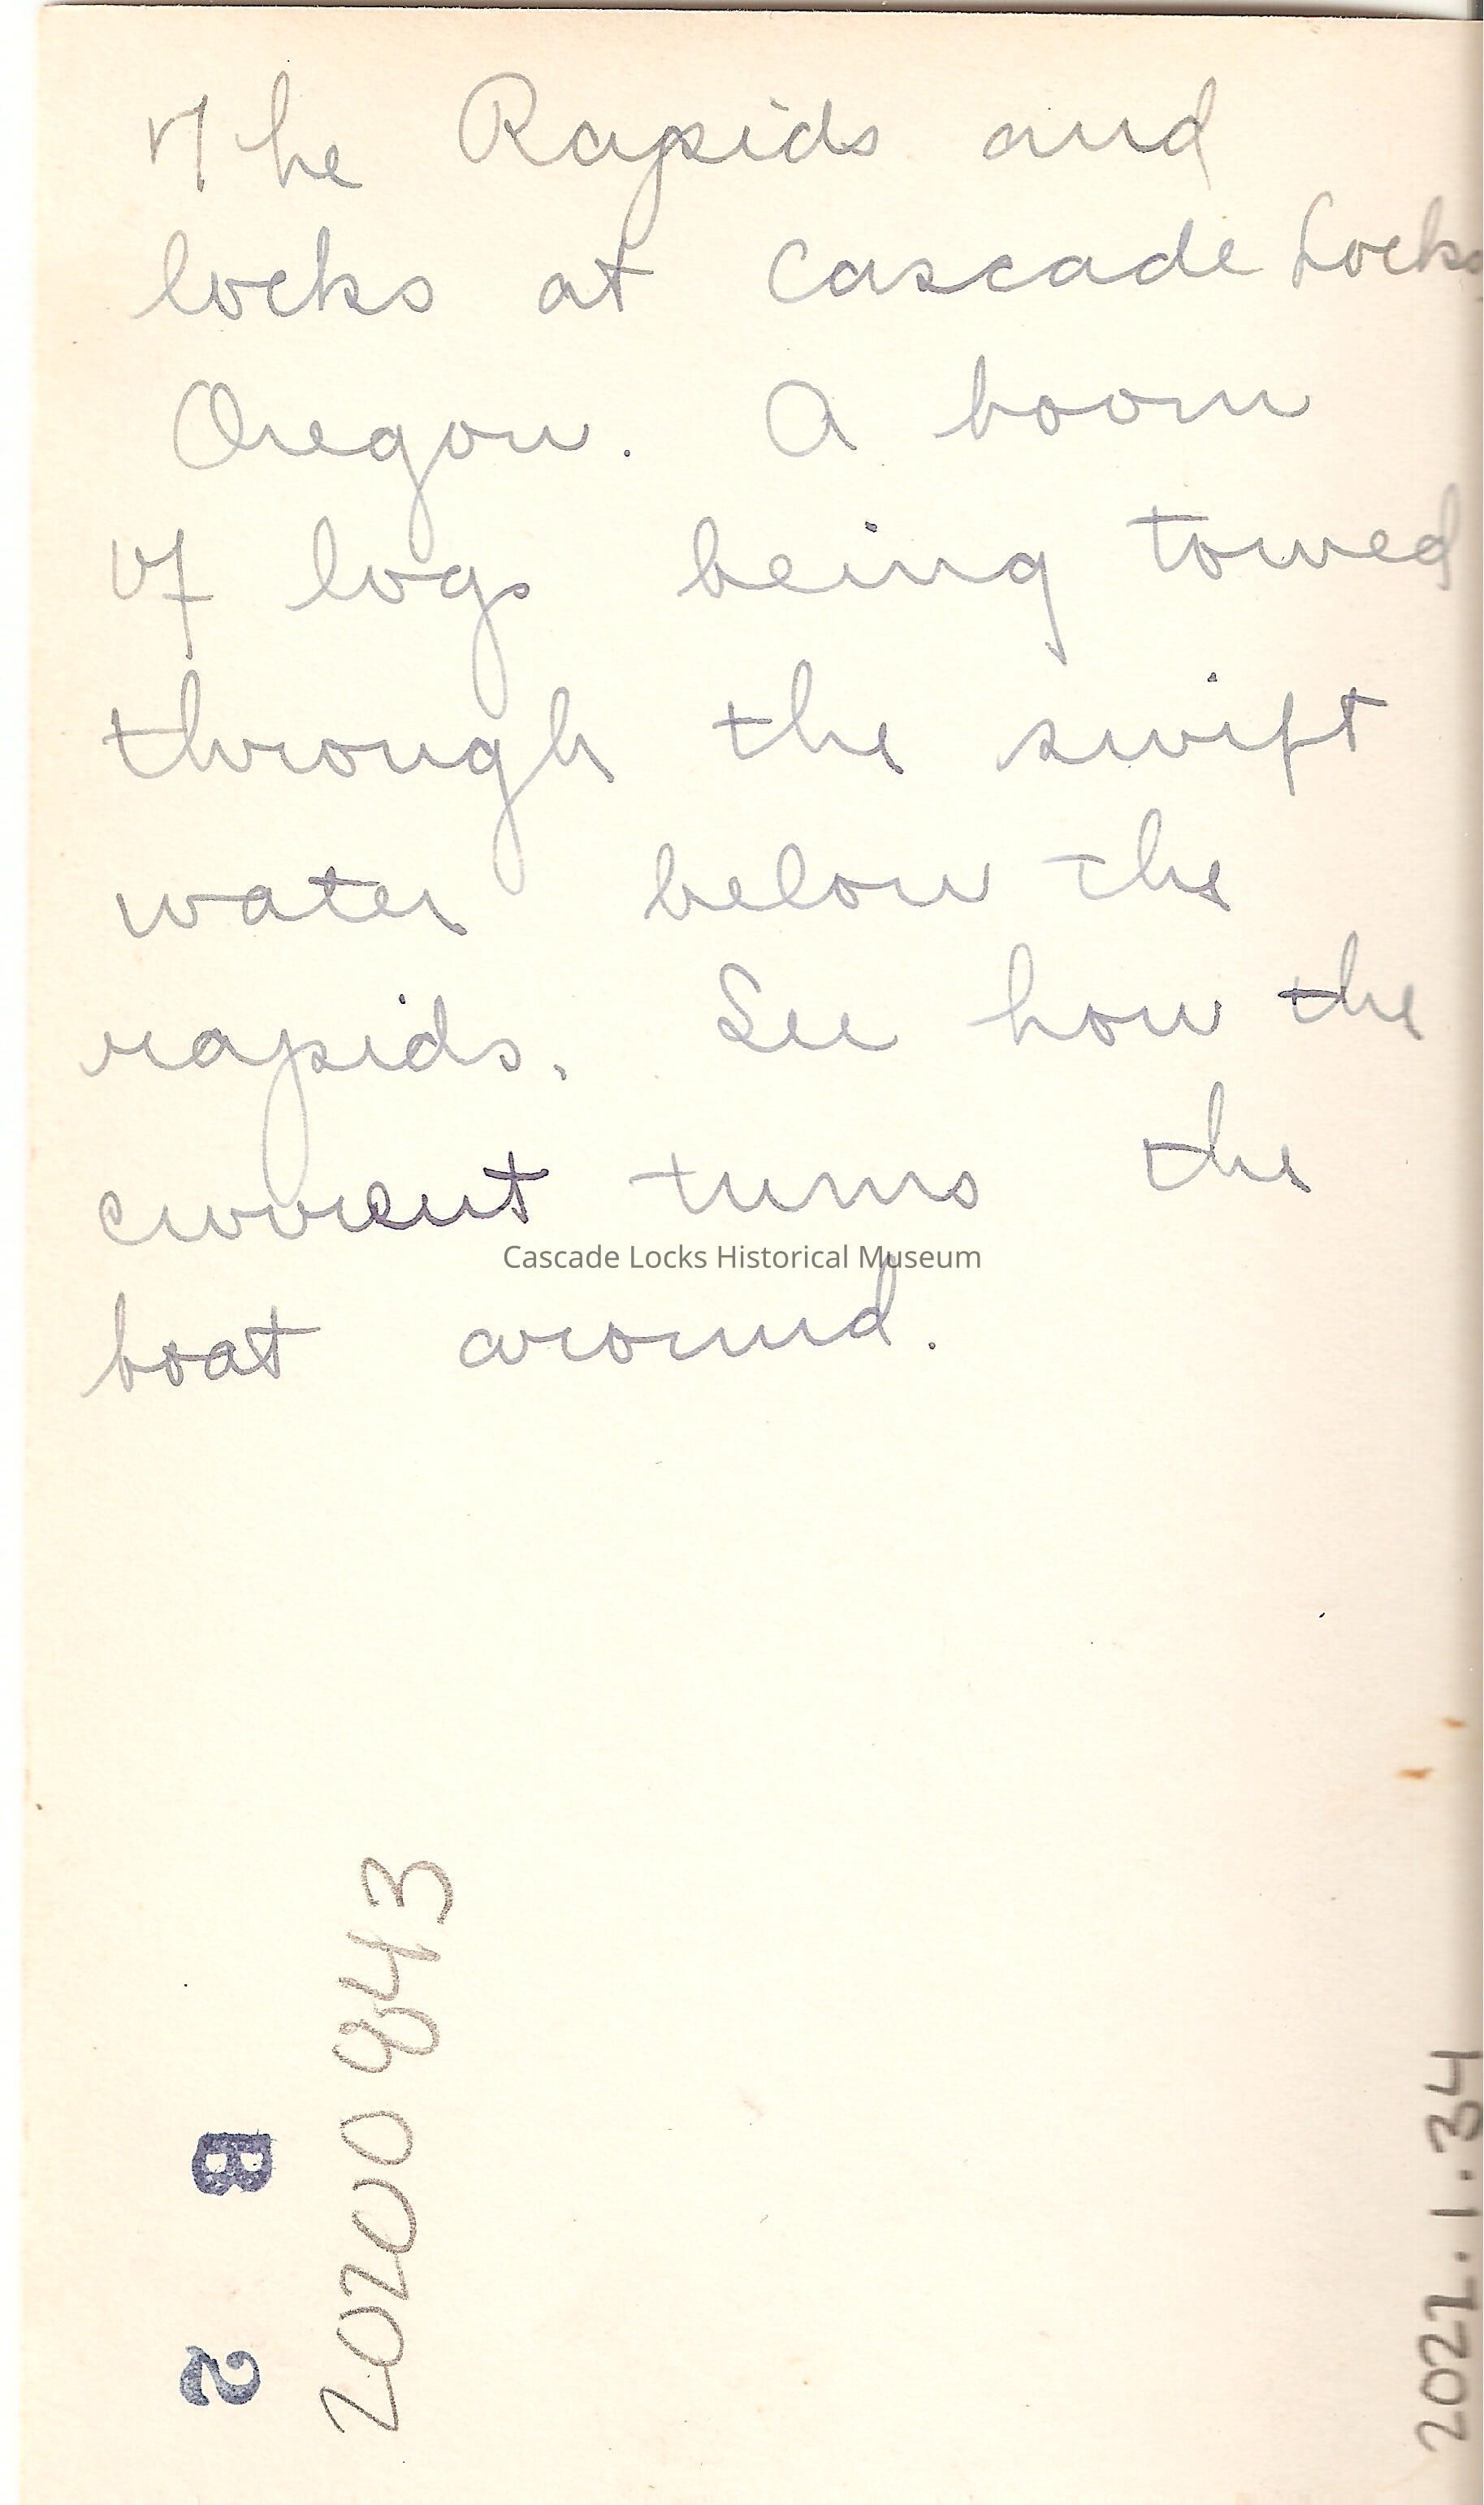 The Rapids and
locks at Cascade Locks
Oregon. A boom
of logs being towed
through the swift
water below the
rapids. See how the
current turns the
boat around.
Cascade Locks Historical Museum
20200843
B 2
2021.1.34